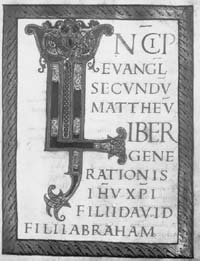 INCIP
EVANGL
SECVNDV
MATTHEV
LIBER
GENE
RATIONIS
IHV XPI
FILII DAVID
FILII ABRAHAM